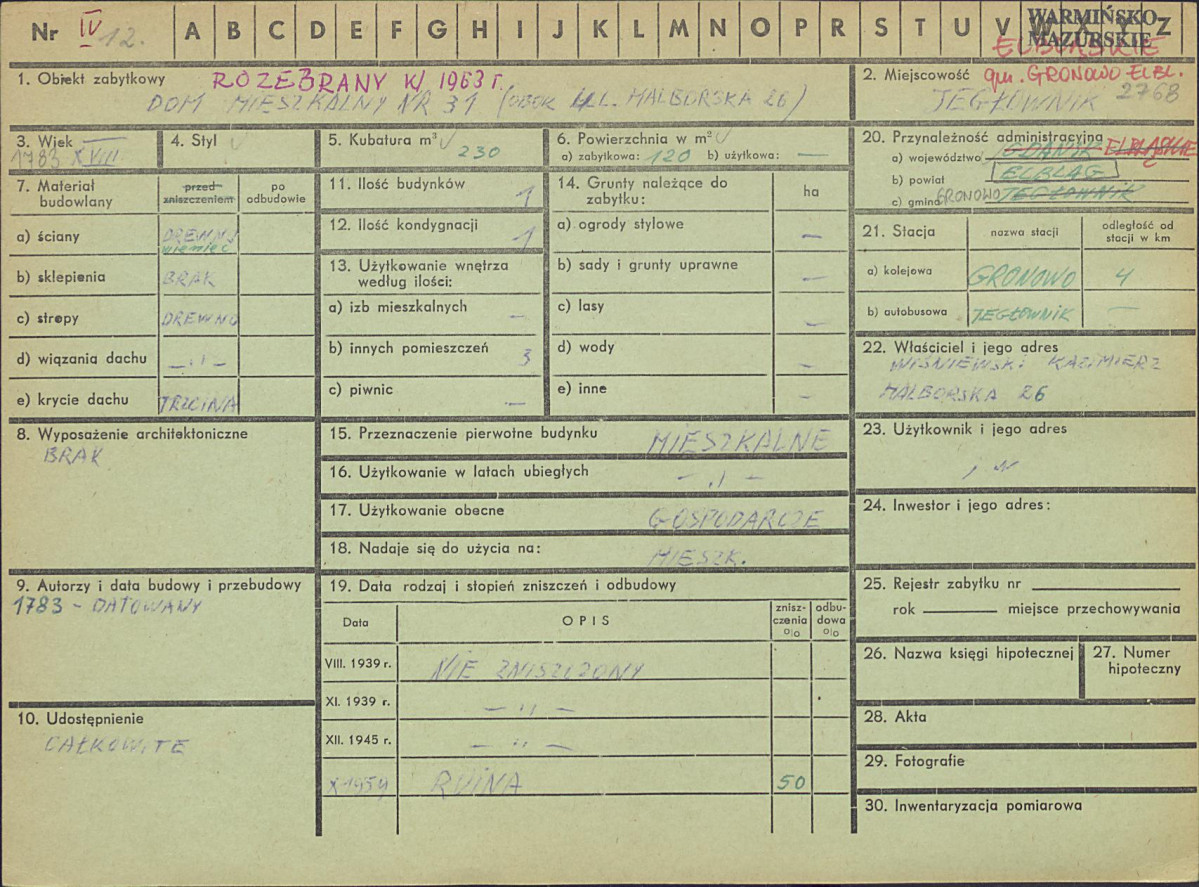 Nr IV 12. A B C D E F G H I J K L M N O P R S T U V W X Y Z
WARMIŃSKO-
MAZURSKIE
ELBLĄSKIE
1. Obiekt zabytkowy ROZEBRANY W 1963 r.
DOM MIESZKALNY NR 31 (OBOK UL. MALBORSKA 26)
2. Miejscowość gm. GRONOWO ELBL.
JEGŁOWNIK 2768
3. Wiek
1783 XVIII
4. Styl
5. Kubatura m³
230
6. Powierzchnia w m²
a) zabytkowa: 120 b) użytkowa: —
7. Materiał budowlany
przed zniszczeniem
po odbudowie
a) ściany DREWNO
wieniec
b) sklepienia BRAK
c) stropy DREWNO
d) wiązania dachu — ,, —
e) krycie dachu TRZCINA
8. Wyposażenie architektoniczne
BRAK
9. Autorzy i data budowy i przebudowy
1783 - DATOWANY
10. Udostępnienie
CAŁKOWITE
11. Ilość budynków 1
12. Ilość kondygnacji 1
13. Użytkowanie wnętrza
według ilości:
a) izb mieszkalnych —
b) innych pomieszczeń 3
c) piwnic —
14. Grunty należące do
zabytku:
ha
a) ogrody stylowe —
b) sady i grunty uprawne —
c) lasy —
d) wody —
e) inne —
15. Przeznaczenie pierwotne budynku MIESZKALNE
16. Użytkowanie w latach ubiegłych — ,, —
17. Użytkowanie obecne GOSPODARCZE
18. Nadaje się do użycia na: MIESZK.
19. Data rodzaj i stopień zniszczeń i odbudowy
Data
OPIS
zniszczenia o|o
odbudowa o|o
VIII. 1939 r. NIE ZNISZCZONY
XI. 1939 r. — ,, —
XII. 1945 r. — ,, —
X 1959 RUINA 50
20. Przynależność administracyjna
a) województwo GDAŃSK ELBLĄSKIE
b) powiat ELBLĄG
c) gmina GRONOWO JEGŁOWNIK
21. Stacja
nazwa stacji
odległość od
stacji w km
a) kolejowa GRONOWO 4
b) autobusowa JEGŁOWNIK —
22. Właściciel i jego adres
WIŚNIEWSKI KAZIMIERZ
MALBORSKA 26
23. Użytkownik i jego adres
j w
24. Inwestor i jego adres:
25. Rejestr zabytku nr
rok miejsce przechowywania
26. Nazwa księgi hipotecznej
27. Numer
hipoteczny
28. Akta
29. Fotografie
30. Inwentaryzacja pomiarowa